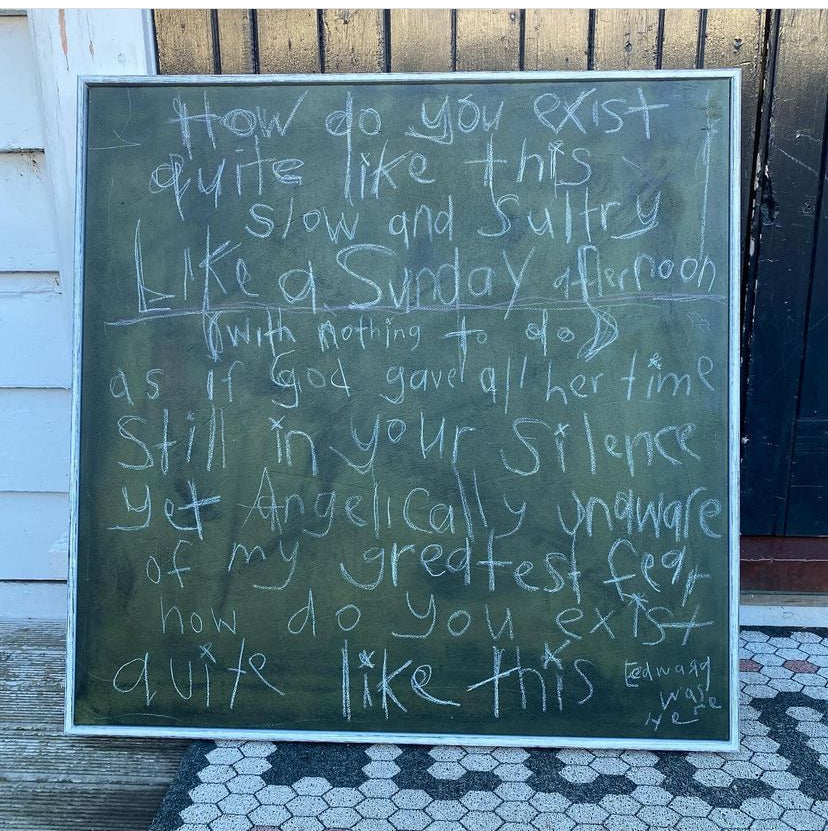 How do you exist
quite like this
slow and Sultry
Like a Sunday afternoon
(with nothing to do)
as if God gave all her time
Still in your silence
yet Angelically unaware
of my greatest fear
how do you exist
quite like this
Edward